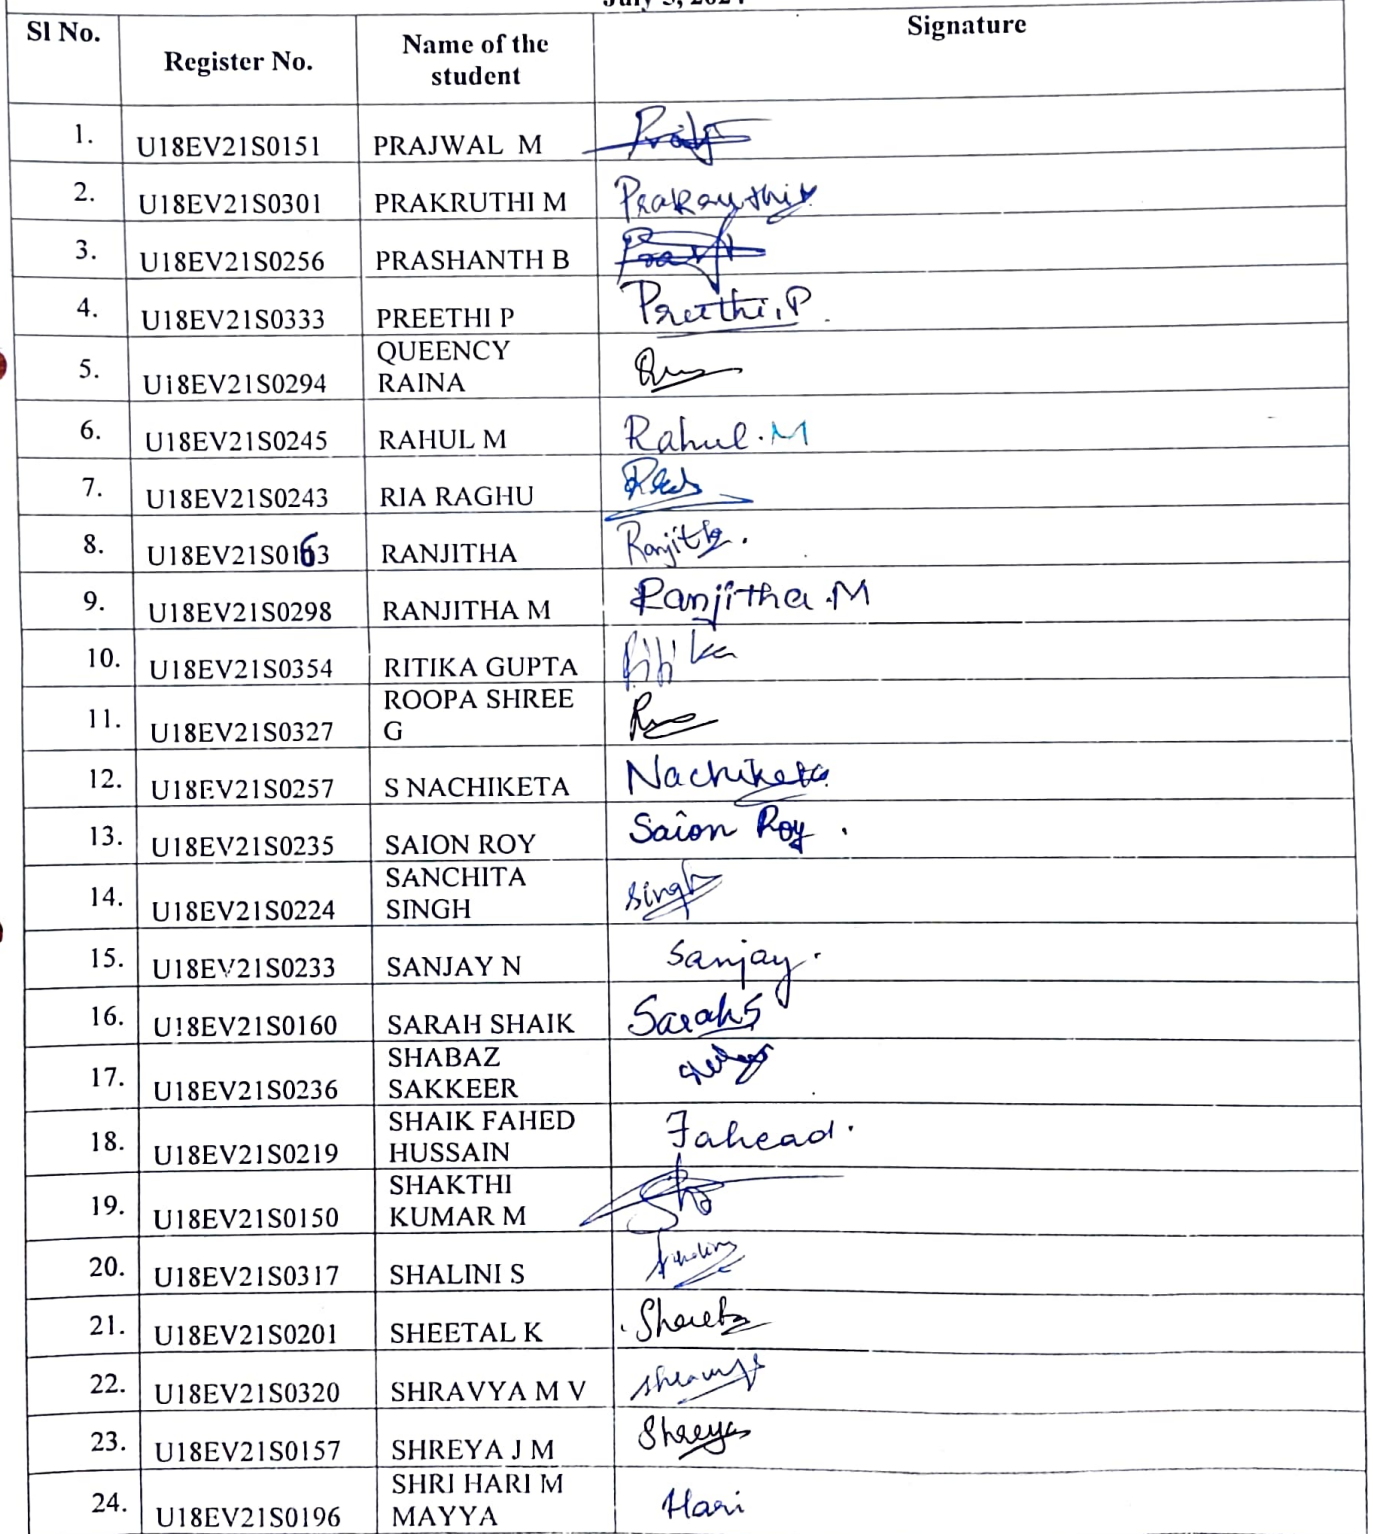 Sl No. Register No. Name of the student Signature
1. U18EV21S0151 PRAJWAL M
2. U18EV21S0301 PRAKRUTHI M
3. U18EV21S0256 PRASHANTH B
4. U18EV21S0333 PREETHI P Preethi.P
5. U18EV21S0294 QUEENCY RAINA
6. U18EV21S0245 RAHUL M Rahul.M
7. U18EV21S0243 RIA RAGHU
8. U18EV21S0163 RANJITHA Ranjitha.
9. U18EV21S0298 RANJITHA M Ranjitha.M
10. U18EV21S0354 RITIKA GUPTA Ritika
11. U18EV21S0327 ROOPA SHREE G
12. U18EV21S0257 S NACHIKETA Nachiketa
13. U18EV21S0235 SAION ROY Saion Roy.
14. U18EV21S0224 SANCHITA SINGH Singh
15. U18EV21S0233 SANJAY N Sanjay.
16. U18EV21S0160 SARAH SHAIK Sarah S
17. U18EV21S0236 SHABAZ SAKKEER
18. U18EV21S0219 SHAIK FAHED HUSSAIN Fahead.
19. U18EV21S0150 SHAKTHI KUMAR M
20. U18EV21S0317 SHALINI S
21. U18EV21S0201 SHEETAL K
22. U18EV21S0320 SHRAVYA M V
23. U18EV21S0157 SHREYA J M Shreya
24. U18EV21S0196 SHRI HARI M MAYYA Hari